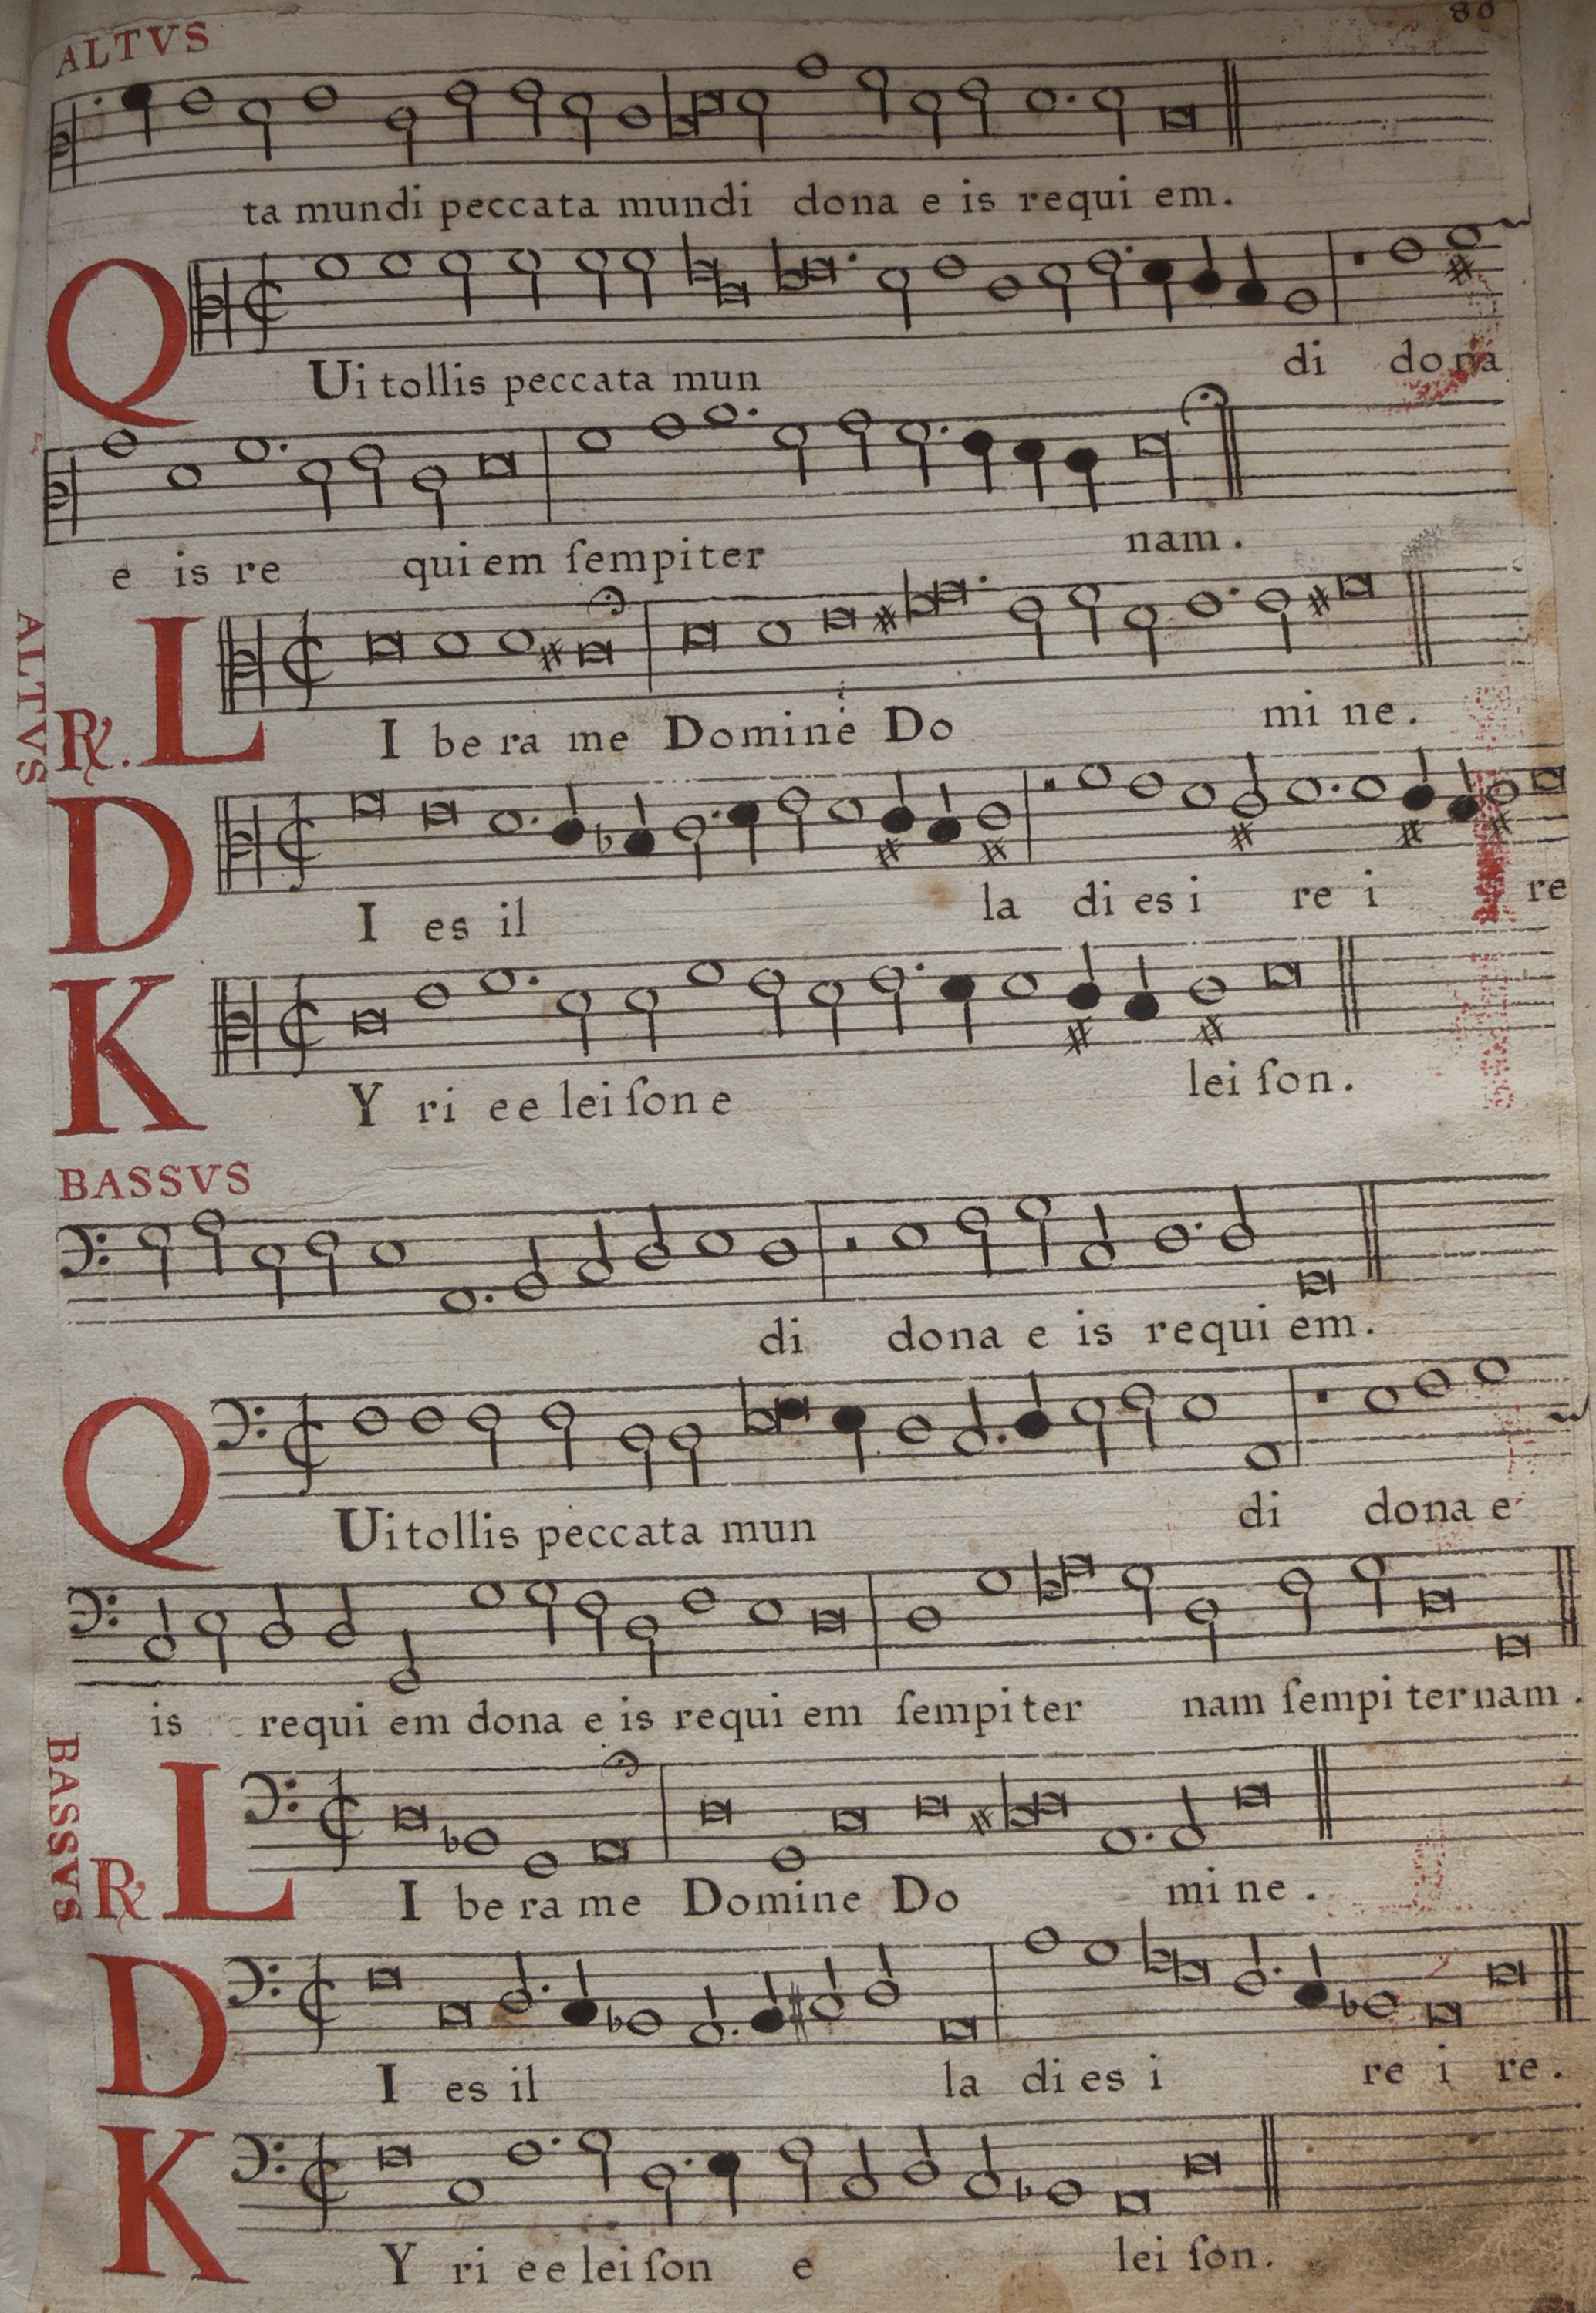 80
ALTVS
ta mundi peccata mundi dona e is requi em.
QUi tollis peccata mun di dona
e is re qui em ſempiter nam.
ALTVS
℟. LI be ra me Domine Do mi ne.
DI es il la di es i re i re
KY ri e e lei ſon e lei ſon.
BASSVS
di dona e is requi em.
QUi tollis peccata mun di dona e
is requi em dona e is requi em ſempiter nam ſempi ternam.
BASSVS
℟ LI be ra me Domine Do mi ne.
DI es il la di es i re i re.
KY ri e e lei ſon e lei ſon.